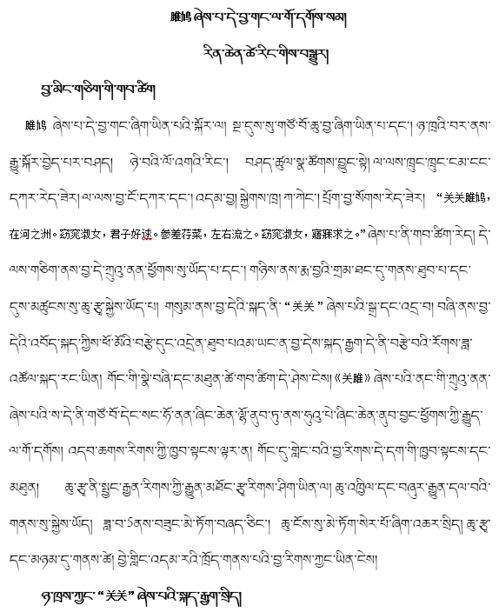 雎鸠 ཞེས་པ་དེ་བྱ་གང་ལ་གོ་དགོས་སམ།
རིན་ཆེན་ཚེ་རིང་གིས་བསྒྱུར།
བྱ་མིང་གཅིག་གི་གབ་ཚིག
雎鸠 ཞེས་པ་དེ་བྱ་གང་ཞིག་ཡིན་པའི་སྐོར་ལ། སྔ་དུས་སུ་གཙོ་བོ་ཆུ་བྱ་ཞིག་ཡིན་པ་དང་། ཉ་ཁྲའི་བར་ནས་
རྒྱུ་སྐོར་བྱེད་པར་བཤད། ཉེ་བའི་ལོ་འགའི་རིང་། བཤད་ཚུལ་སྣ་ཚོགས་བྱུང་སྟེ། ལ་ལས་ཁྲུང་ཁྲུང་ངམ་ངང་
དཀར་རེད་ཟེར། ལ་ལས་བྱ་ངོ་དཀར་དང་། འདམ་བྱ། སྐྱེགས་ཁྲ། ཀ་ཀེང་། ཕྲོག་བྱ་སོགས་རེད་ཟེར། “关关雎鸠，
在河之洲。窈窕淑女，君子好逑。参差荇菜，左右流之。窈窕淑女，寤寐求之。”ཞེས་པ་ནི་གབ་ཚིག་རེད། དེ་
ལས་གཅིག་ནས་བྱ་དེ་ཀྲུའུ་ནན་ཕྱོགས་སུ་ཡོད་པ་དང་། གཉིས་ནས་རྨ་བྱའི་གྲམ་ཐང་དུ་གནས་ཐུབ་པ་དང་
དུས་མཚུངས་སུ་ཆུ་རྩྭ་སྐྱེས་ཡོད་པ། གསུམ་ནས་བྱ་དེའི་སྐད་ནི་“关关”ཞེས་པའི་སྒྲ་དང་འདྲ་བ། བཞི་ནས་བྱ་
དེའི་འབོད་སྐད་ཀྱིས་ཕོ་མོའི་བརྩེ་དུང་འདྲེན་ཐུབ་པའམ་ཡང་ན་བྱ་དེས་སྐད་རྒྱག་དེ་ནི་བརྩེ་བའི་རོགས་ཟླ་
འཚོལ་སྐད་རང་ཡིན། གོང་གི་སྣེ་བཞི་དང་མཐུན་ཚེ་གབ་ཚིག་དེ་ཤེས་ངེས།《关雎》ཞེས་པའི་ནང་གི་ཀྲུའུ་ནན་
ཞེས་པའི་ས་དེ་ནི་གཙོ་བོ་དེང་སང་ཧོ་ནན་ཞིང་ཆེན་ལྷོ་ནུབ་ཏུ་ནས་ཧུའུ་པེ་ཞིང་ཆེན་ནུབ་བྱང་ཕྱོགས་ཀྱི་རྒྱུད་
ལ་གོ་དགོས། འདབ་ཆགས་རིགས་ཀྱི་ཁྱབ་སྟངས་ལྟར་ན། གོང་དུ་གླེང་བའི་བྱ་རིགས་དེ་དག་གི་ཁྱབ་སྟངས་དང་
མཐུན། ཆུ་རྩྭ་ནི་སྤྱང་རྒྱན་རིགས་ཀྱི་རྒྱུན་མཐོང་རྩྭ་རིགས་ཤིག་ཡིན་ལ། ཆུ་འཁྱིལ་དང་བཞུར་རྒྱུན་དལ་བའི་
གནས་སུ་སྐྱེས་ཡོད། ཟླ་བ་5ནས་བཟུང་མེ་ཏོག་བཞད་ཅིང་། ཆུ་ངོས་སུ་མེ་ཏོག་སེར་པོ་ཞིག་འཆར་སྲིད། ཆུ་རྩྭ་
དང་མཉམ་དུ་གནས་ཚེ། བྱེ་གླིང་འདམ་རའི་ཁྲོད་གནས་པའི་བྱ་རིགས་ཀྱང་ཡིན་ངེས།
ཉ་ཁྲས་ཀྱང་“关关”ཞེས་པའི་སྐད་རྒྱག་སྲིད།